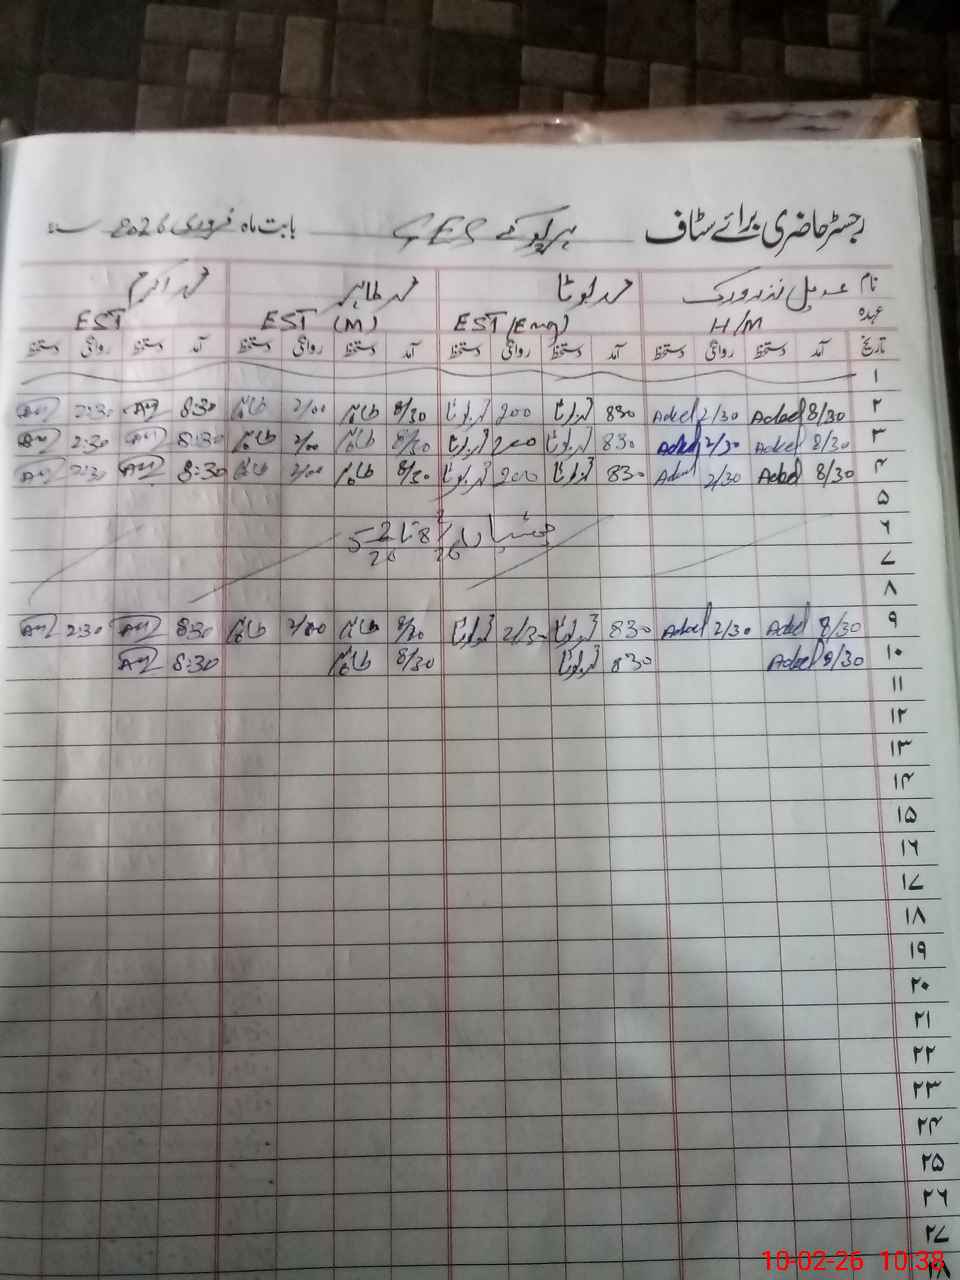 رجسٹر حاضری برائے سٹاف ہرپوکے GES بابت ماہ فروری 2026 سنہ
نام عدیل نذر ورک محمد بوٹا محمد طاہر محمد اکرم
عہدہ H/M EST (Eng) EST (M) EST
تاریخ آمد دستخط روانگی دستخط آمد دستخط روانگی دستخط آمد دستخط روانگی دستخط آمد دستخط روانگی دستخط
۱
۲ 8/30 Adeel 2/30 Adeel 830 محمد بوٹا 200 محمد بوٹا 8/30 طاہر 2/00 طاہر 8:30 2:30
۳ 8/30 Adeel 2/30 Adeel 830 محمد بوٹا 200 محمد بوٹا 8/30 طاہر 2/00 طاہر 8:30 2:30
۴ 8/30 Adeel 2/30 Adeel 830 محمد بوٹا 200 محمد بوٹا 8/30 طاہر 2/00 طاہر 8:30 2:30
۵
۶ چھٹیاں 8 تا 5
۷
۸
۹ 8/30 Adeel 2/30 Adeel 830 محمد بوٹا 2/30 محمد بوٹا 8/30 طاہر 2/00 طاہر 8:30 2:30
۱۰ 8/30 Adeel 830 محمد بوٹا 8/30 طاہر 8:30
۱۱
۱۲
۱۳
۱۴
۱۵
۱۶
۱۷
۱۸
۱۹
۲۰
۲۱
۲۲
۲۳
۲۴
۲۵
۲۶
۲۷
۲۸
10-02-26 10:38